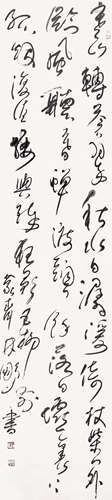 寒山轉蒼翠秋水日潺湲倚杖柴門外
臨風聽暮蟬渡頭餘落日墟里上
孤烟復值接輿醉狂歌五柳前
書